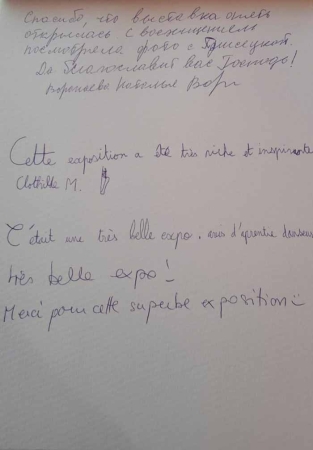 Спасибо, что выставка опять
открылась с восхищением
посмотрела фото с Плисецкой.
Да благославит вас Господь!
Воронаева Наталья
Cette exposition a été très riche et inspirante
Clothilde M.
C'était une très belle expo. avis d'aprentie danseuse
très belle expo !
Merci pour cette superbe exposition